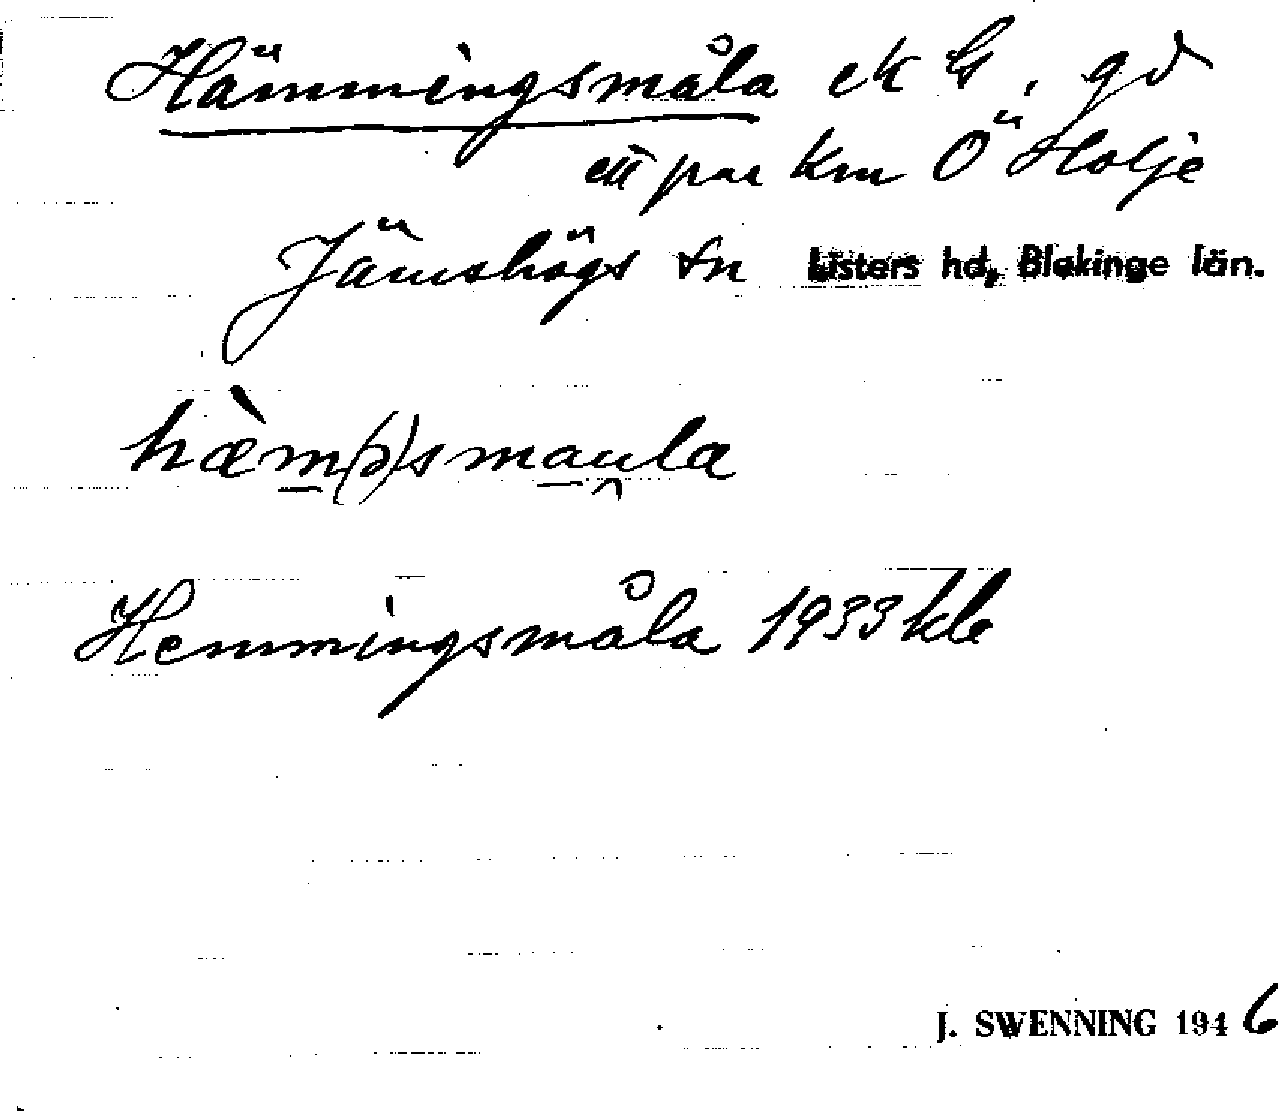 Hämmingsmåla ek G, gd
ett par km Ö Holje
Jämshögs sn Listers hd, Blekinge län.
hæ̀m(ə)smau̯la
Hemmingsmåla 1933 kb
J. SWENNING 1946